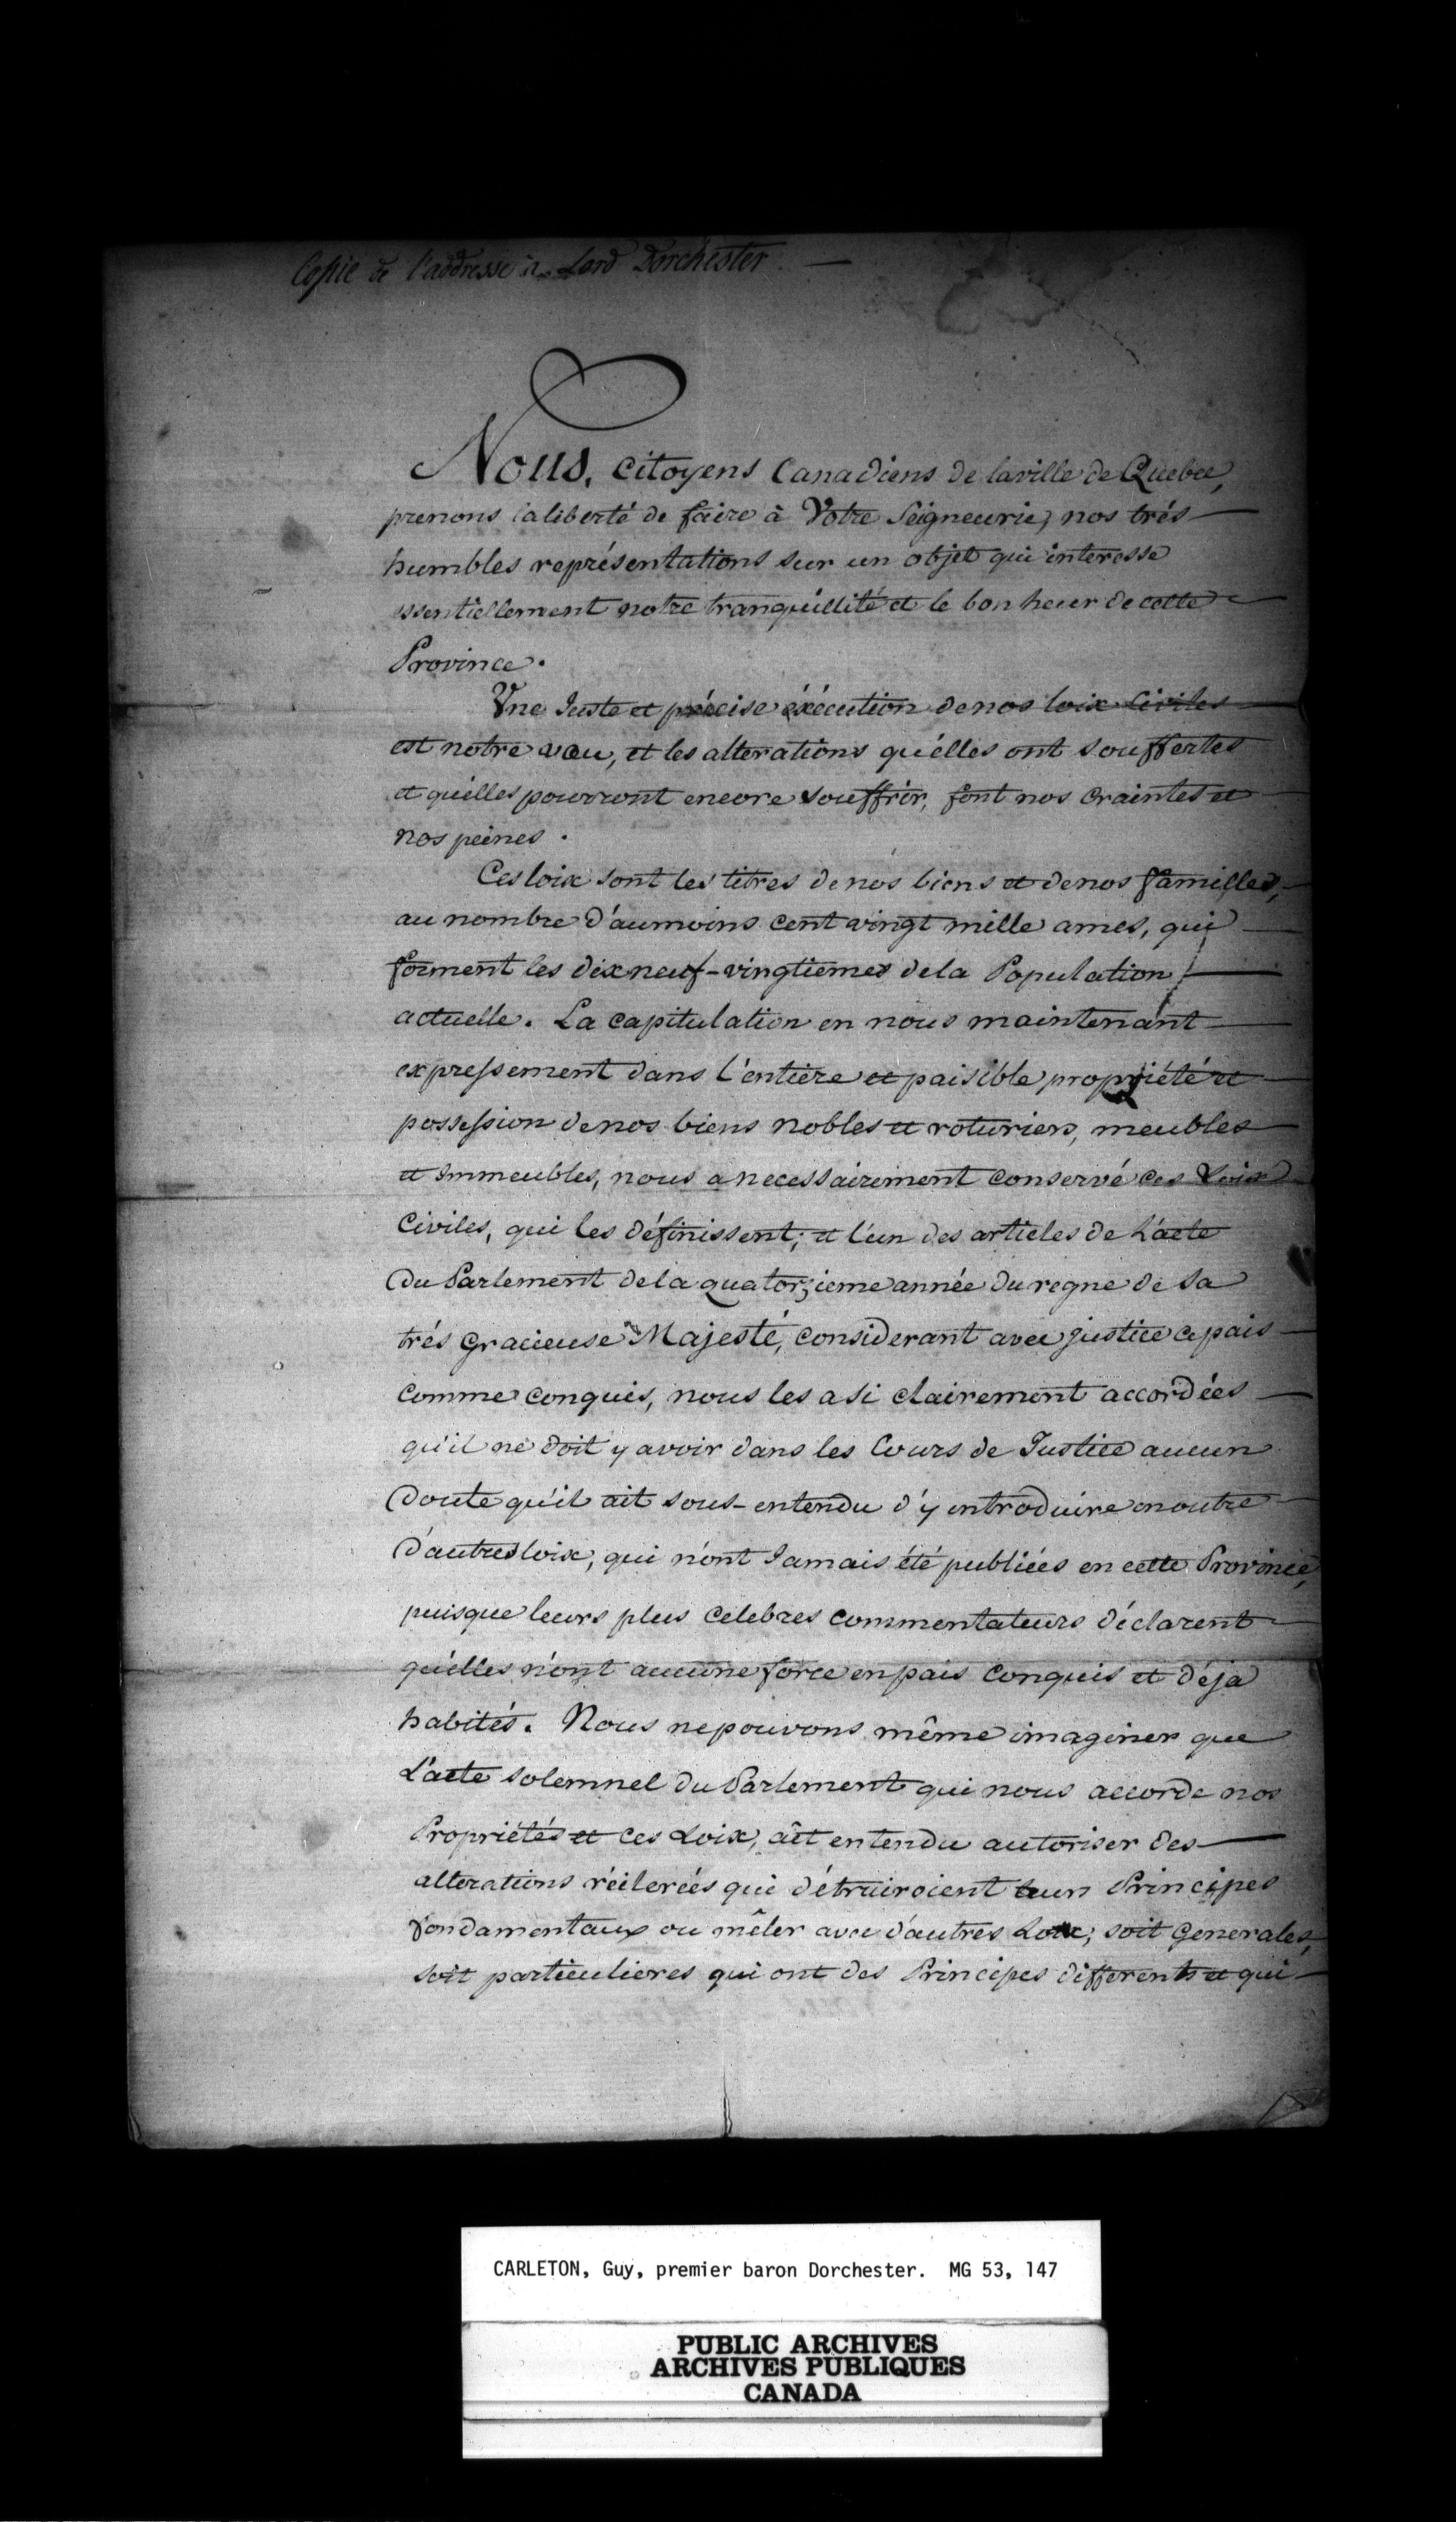 Copie de l'addresse à Lord Dorchester. —
Nous, citoyens Canadiens de la ville de Quebec,
prenons la liberté de faire à Votre Seigneurie, nos trés
humbles représentations sur un objet qui interesse
essentiellement notre tranquillité et le bonheur de cette
Province.
Une Juste et précise éxécution de nos loix Civiles
est notre vœu, et les alterations qu'elles ont souffertes
et qu'elles pourront encore souffrir, font nos craintes et
nos peines.
Ces loix sont les titres de nos biens et de nos familles,
au nombre d'aumoins cent vingt mille ames, qui
forment les dix neuf-vingtiemes de la Population
actuelle. La capitulation en nous maintenant
expressement dans l'entiere et paisible propriété et
possession de nos biens nobles et roturiers, meubles
et Immeubles, nous a necessairement conservé ces Loix
Civiles, qui les définissent; et l'un des articles de L'acte
Du Parlement de la quatorzieme année du regne de Sa
trés Gracieuse Majesté, considerant avec justice ce pais
comme conquis, nous les a si clairement accordées
qu'il ne doit y avoir dans les Cours de Justice aucun
Doute qu'il ait sous-entendu d'y introduire en outre
D'autres loix, qui n'ont Jamais été publiées en cette Province,
puisque leurs plus celebres commentateurs déclarent
qu'elles n'ont aucune force en pais conquis et déja
habités. Nous ne pouvons même imaginer que
L'acte solemnel du Parlement qui nous accorde nos
Propriétés et ces Loix, aît entendu autoriser des
alterations réiterées qui détruiroient leurs Principes
fondamentaux ou mêler avec d'autres Loix, soit Generales,
soit particulieres qui ont des Principes differents et qui
CARLETON, Guy, premier baron Dorchester. MG 53, 147
PUBLIC ARCHIVES
ARCHIVES PUBLIQUES
CANADA